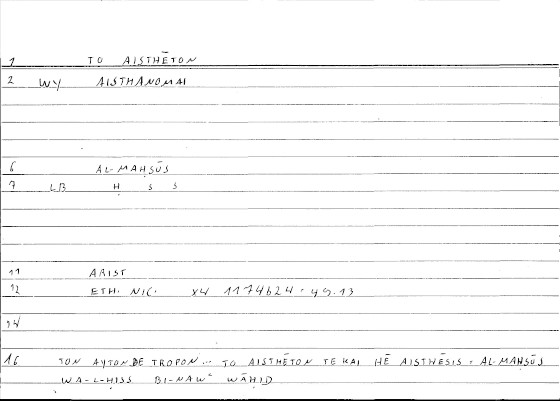 1 TO AISTHĒTON
2 WY AISTHANOMAI
6 AL-MAḤSŪS
7 LB Ḥ S S
11 ARIST
12 ETH. NIC. X4 1174b24 : 49.13
14
16 TON AYTON DE TROPON... TO AISTHĒTON TE KAI HĒ AISTHĒSIS : AL-MAḤSŪS
WA-L-ḤISS BI-NAWʿ WĀḤID